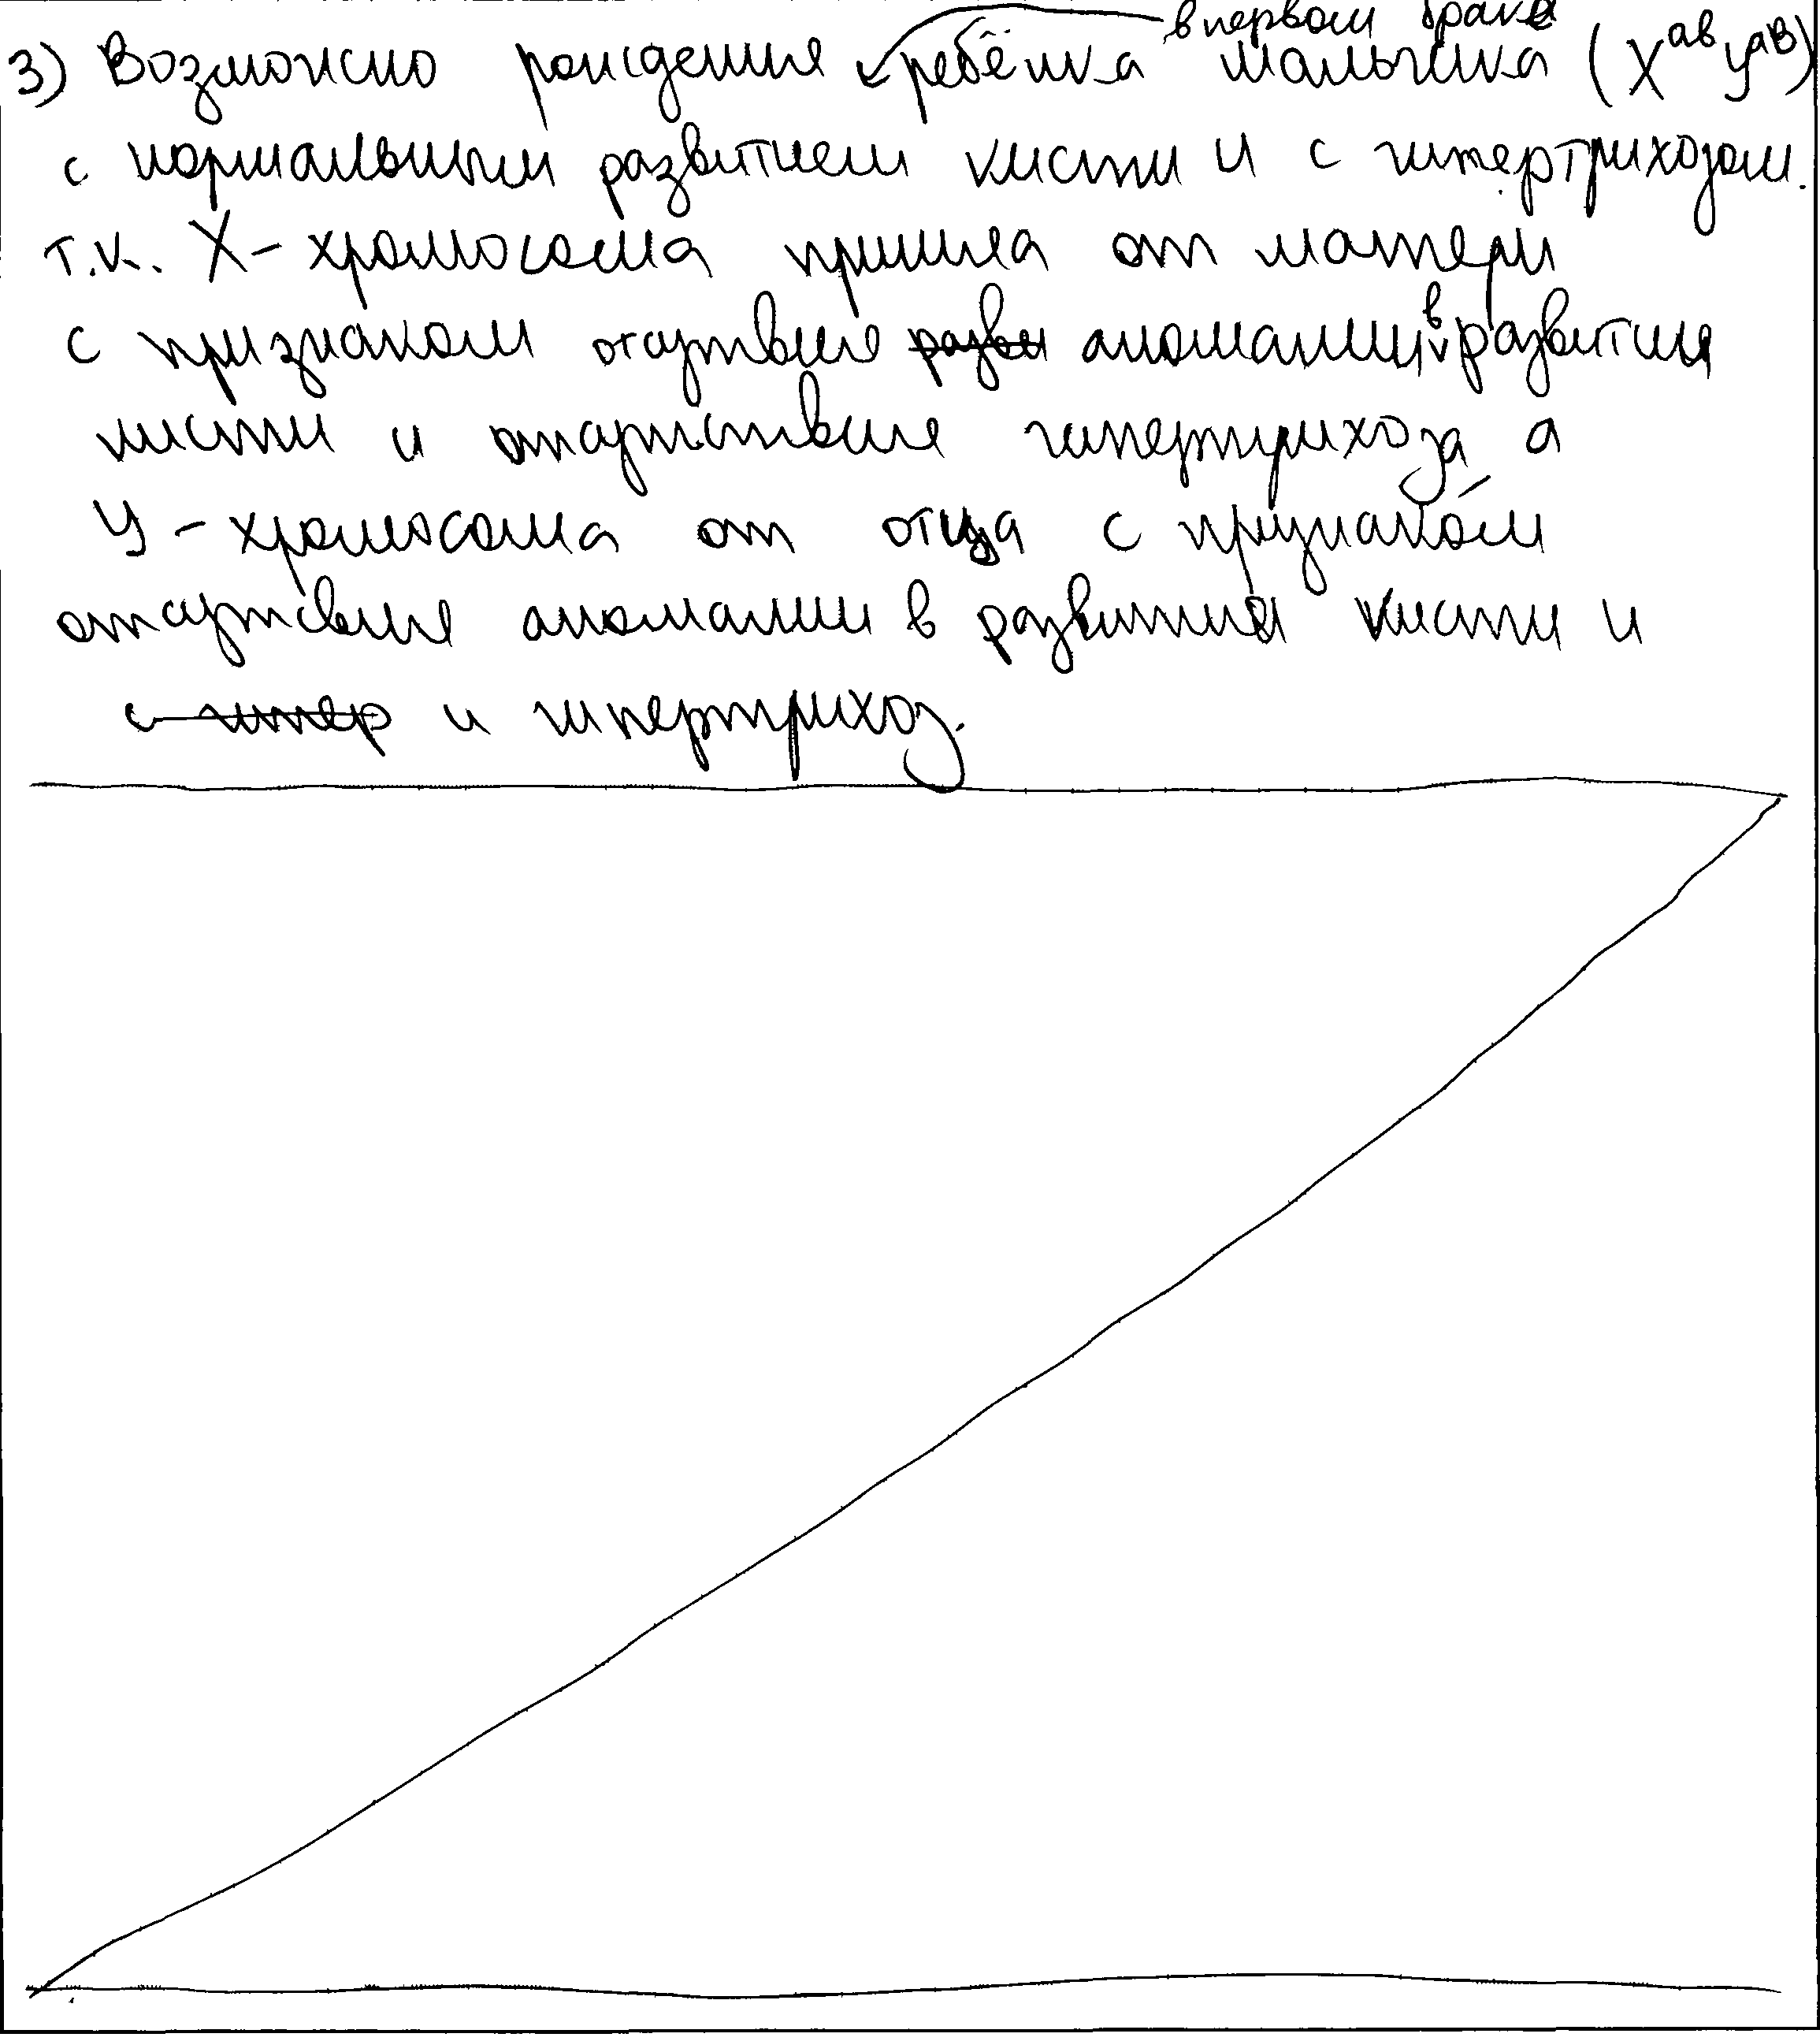 в первом браке
3) Возможно рождение ребёнка мальчика (X^ab У^aB)
с нормальным развитием кисти и с гипертрихозом.
т.к. X - хромосома пришла от матери
с признаком отсутвие разви аномалии в развитии
кисти и отсутствие гипертрихоза а
У - хромосома от отца с признаком
отсутсвие аномалии в развитии кисти и
с гипер и гипертрихоз.